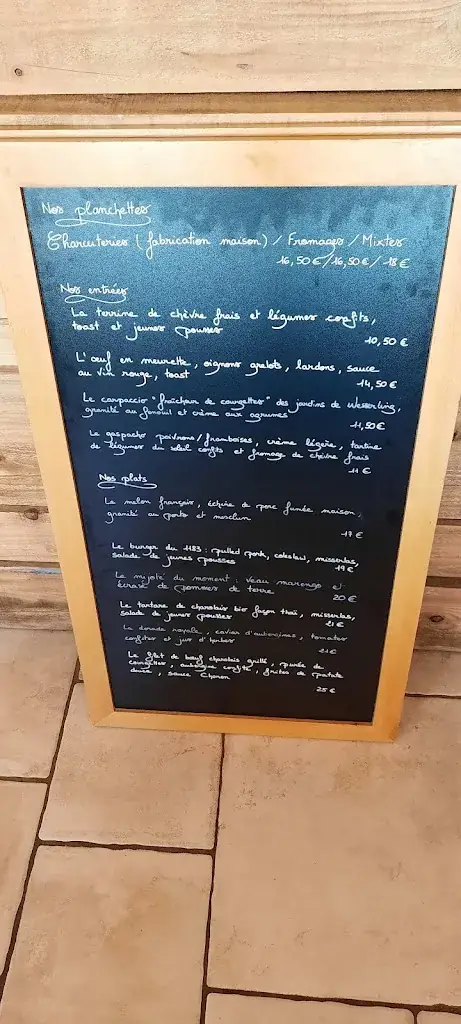 Nos planchettes
Charcuteries (fabrication maison) / Fromages / Mixtes
16,50 € / 16,50 € / 18 €
Nos entrées
La terrine de chèvre frais et légumes confits,
toast et jeunes pousses
10,50 €
L'œuf en meurette, oignons grelots, lardons, sauce
au vin rouge, toast
14,50 €
Le carpaccio "fraîcheur de courgettes" des jardins de Wesserling,
granité au fenouil et crème aux agrumes
11,50 €
Le gaspacho poivrons / framboises, crème légère, tartine
de légumes du soleil confits et fromage de chèvre frais
11 €
Nos plats
Le melon français, échine de porc fumée maison,
granité au porto et mesclun
17 €
Le burger du 1183 : pulled pork, coleslaw, misserlas,
salade de jeunes pousses
19 €
Le mijoté du moment : veau marengo et
écrasé de pommes de terre
20 €
Le tartare de charolais bio façon thaï, misserlas,
salade de jeunes pousses
21 €
La dorade royale, caviar d'aubergines, tomates
confites et jus d'herbes
21 €
Le filet de bœuf charolais grillé, purée de
courgettes, aubergine confite, frites de patate
douce, sauce Choron
25 €